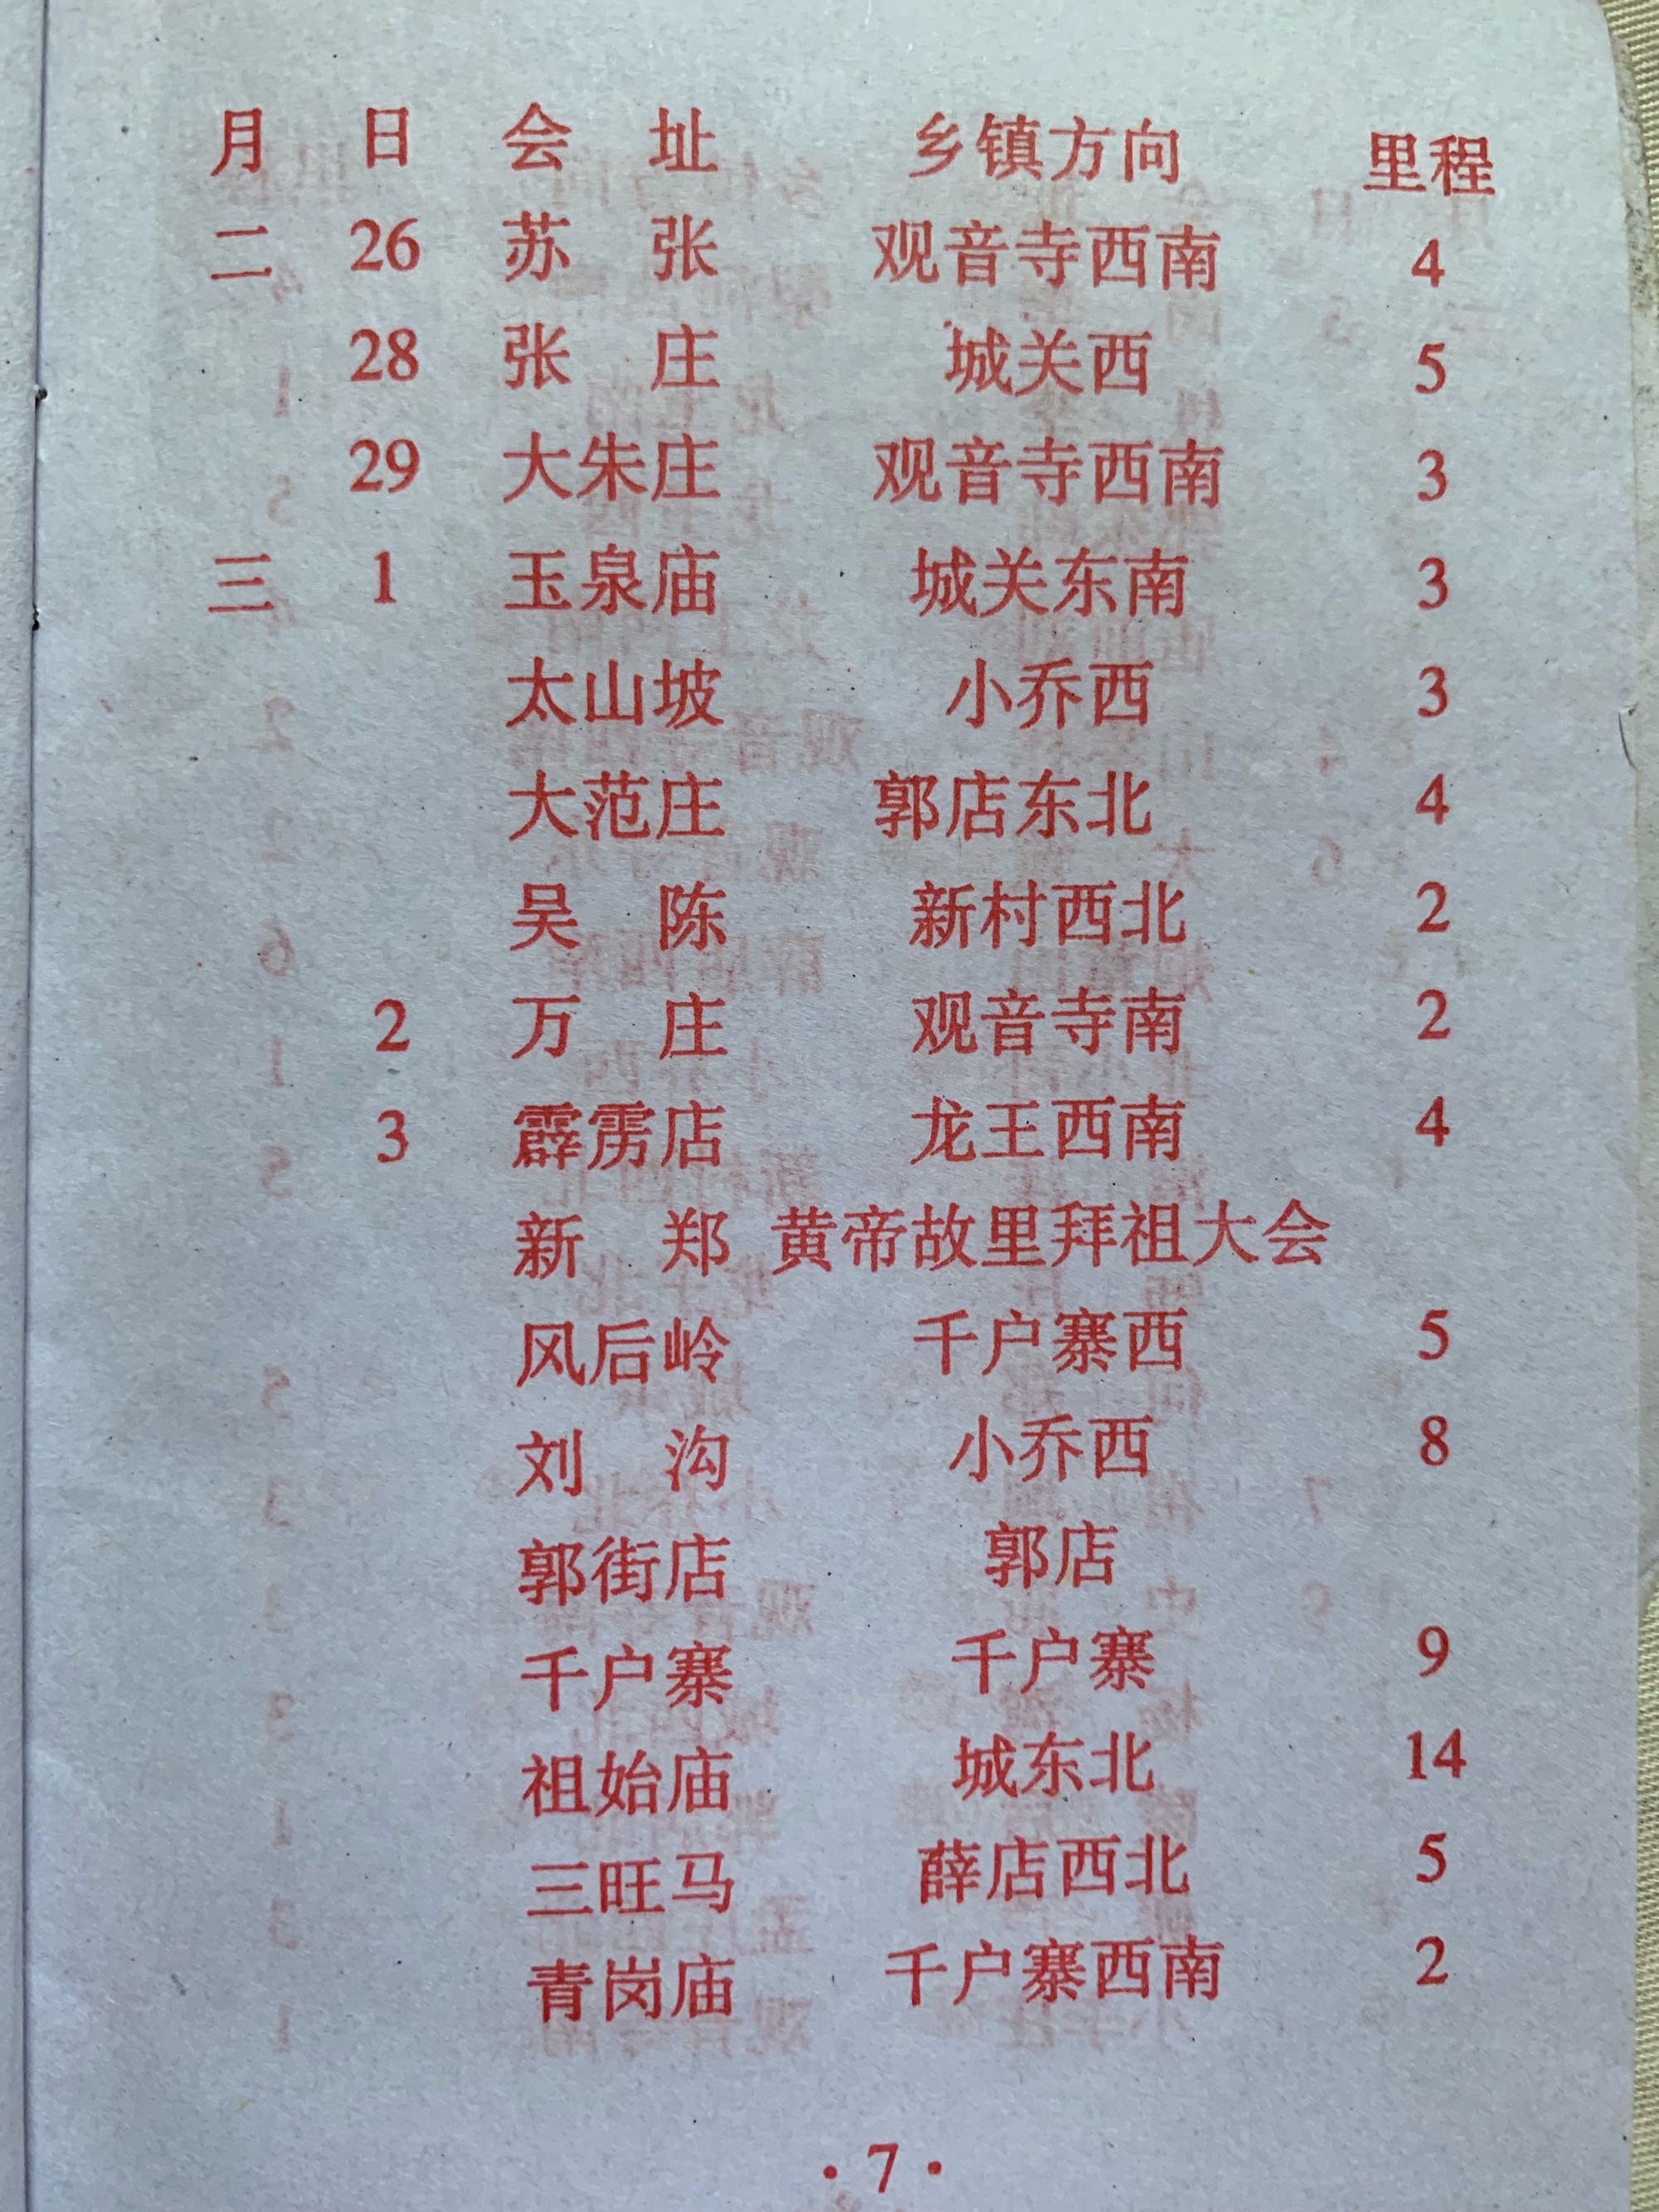 月 日 会 址 乡镇方向 里程
二 26 苏 张 观音寺西南 4
28 张 庄 城关西 5
29 大朱庄 观音寺西南 3
三 1 玉泉庙 城关东南 3
太山坡 小乔西 3
大范庄 郭店东北 4
吴 陈 新村西北 2
2 万 庄 观音寺南 2
3 霹雳店 龙王西南 4
新 郑 黄帝故里拜祖大会
风后岭 千户寨西 5
刘 沟 小乔西 8
郭街店 郭店
千户寨 千户寨 9
祖始庙 城东北 14
三旺马 薛店西北 5
青岗庙 千户寨西南 2
·7·